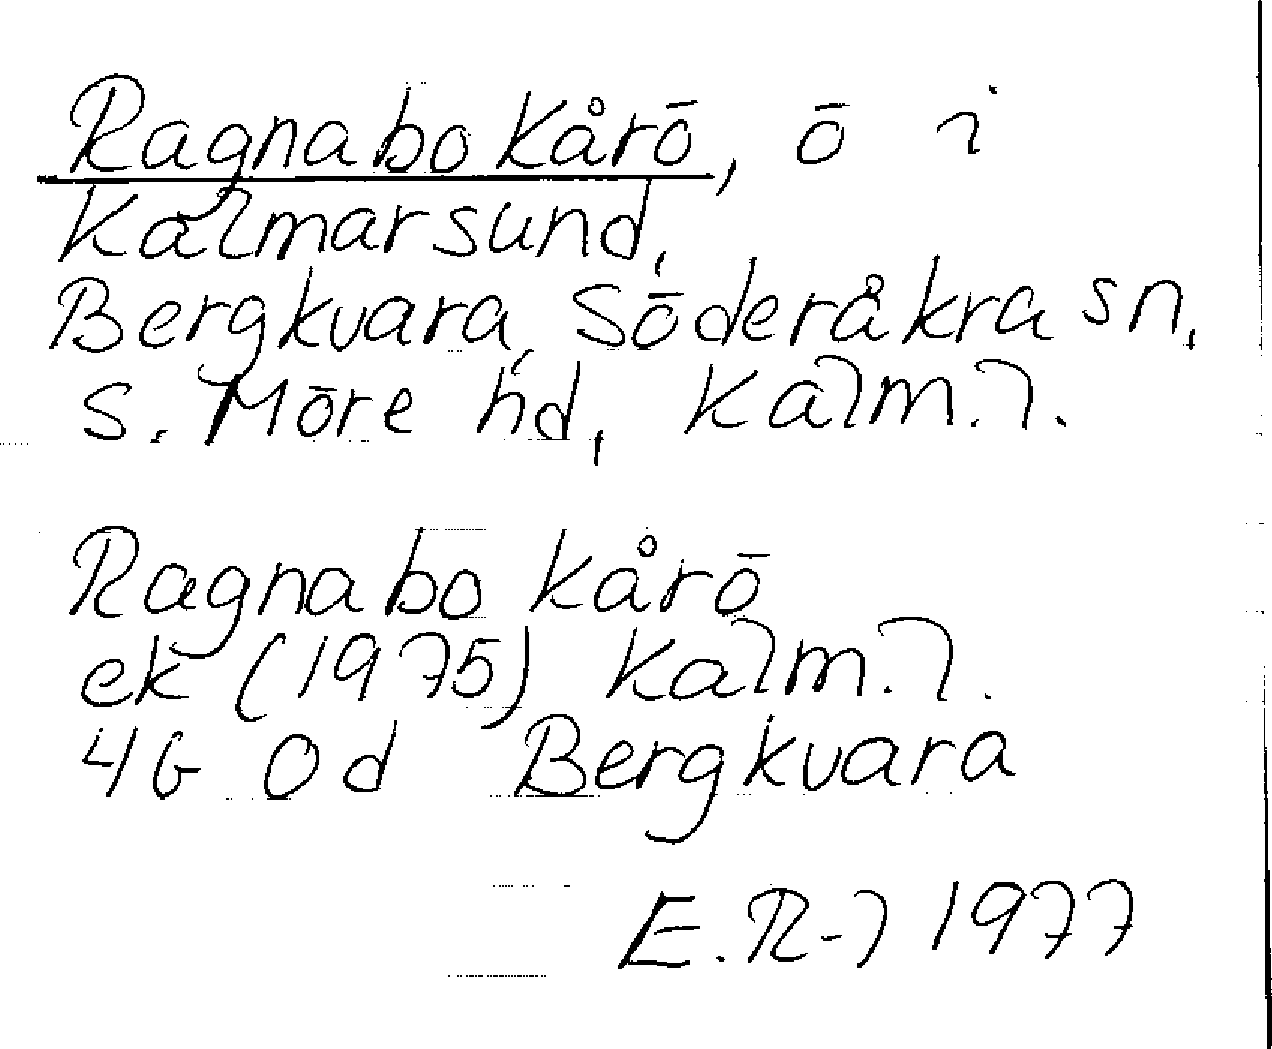 Ragnabo Kårö, ö i
Kalmarsund,
Bergkvara, Söderåkra sn,
S. Möre hd, Kalm. l.
Ragnabo kårö
ek (1975) Kalm. l.
4G 0d Bergkvara
E. R-l 1977